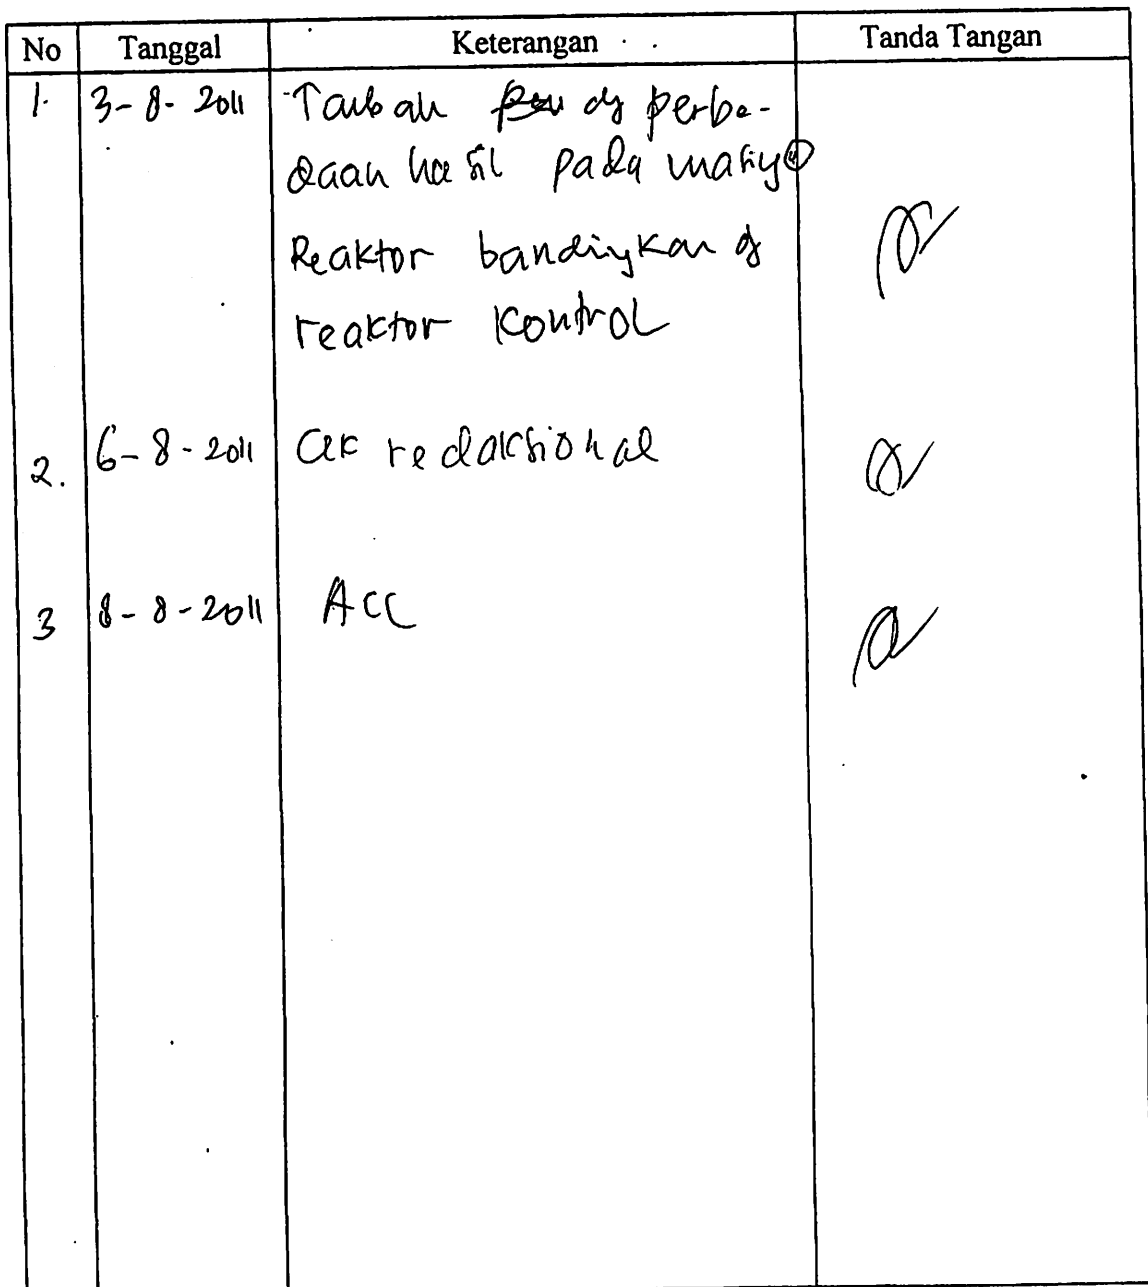 No Tanggal Keterangan Tanda Tangan
1. 3-8-2011 Tambah dg perbe-
daan hasil pada masing②
Reaktor bandingkan dg
reaktor kontrol
2. 6-8-2011 cek redaksional
3 8-8-2011 ACC